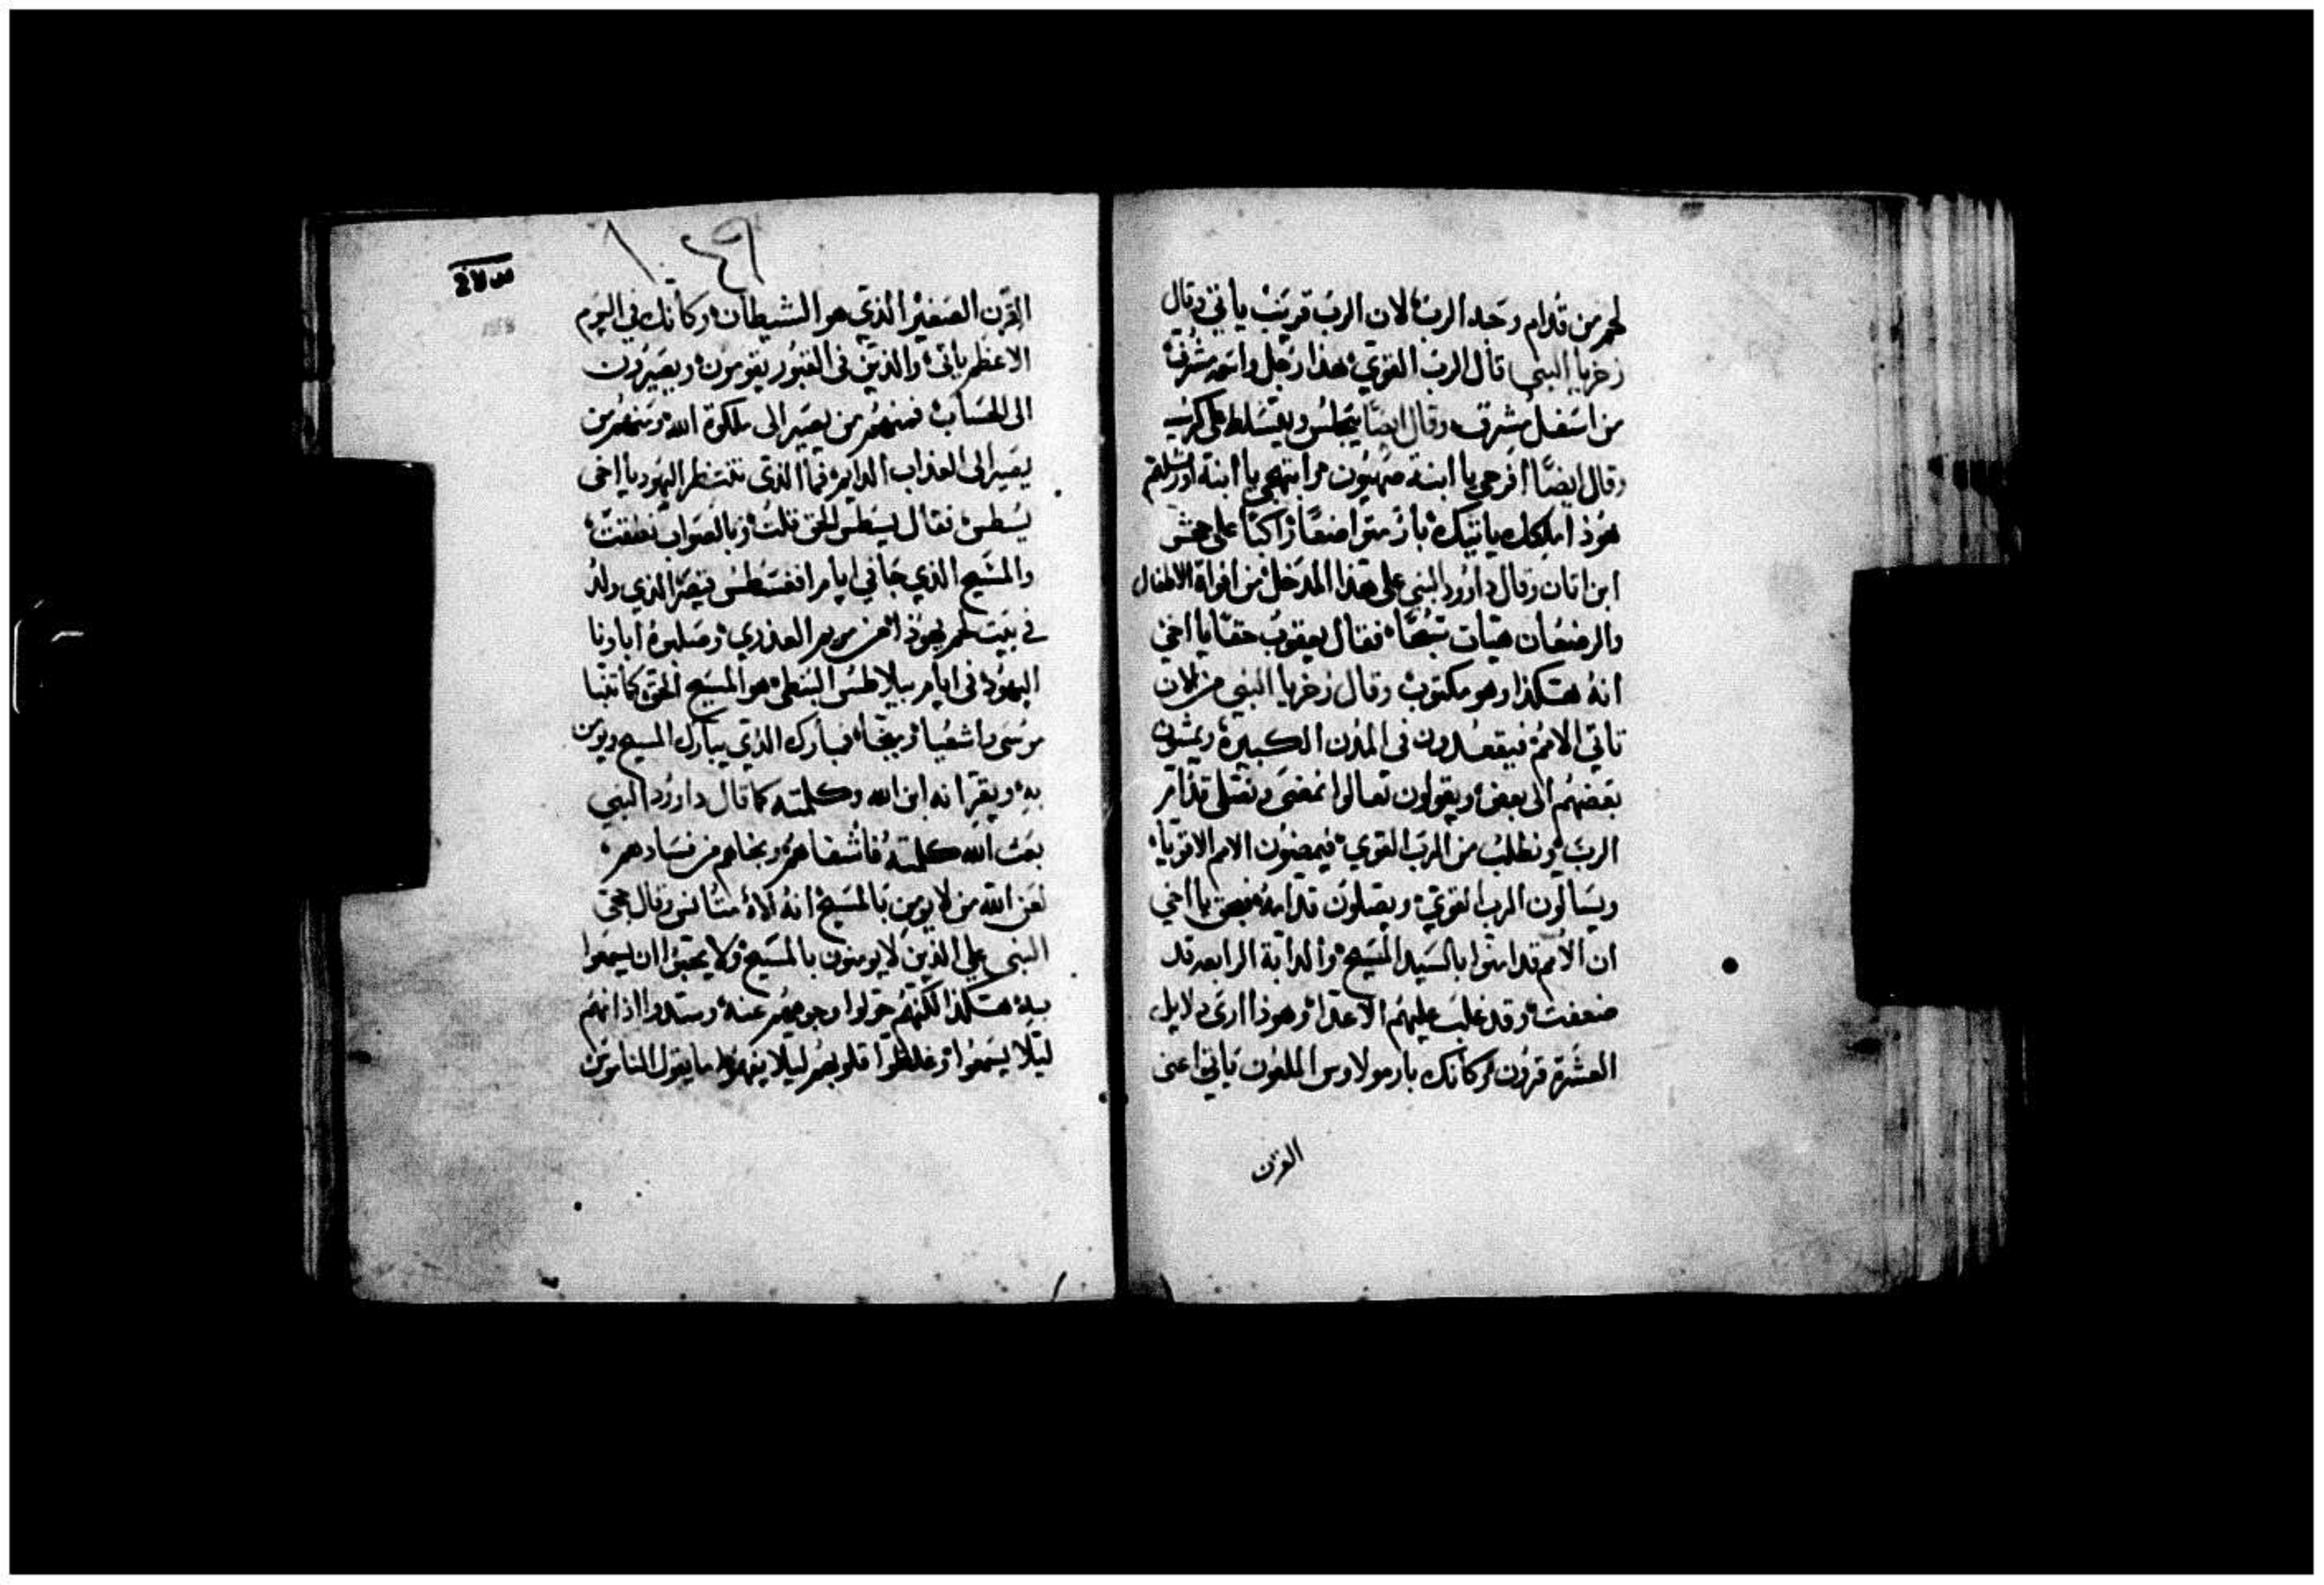 لحم من قدام وجه الرب لان الرب قريب ياتي وقال
زخريا النبي قال الرب القوي هذا رجل واسمه مشرق
من اسفل مشرق وقال ايضا يجلس ويتسلط على كرسي
وقال ايضا افرحي يا ابنة صهيون وابتهجي يا ابنة اورشليم
هوذا ملكك ياتيك بار متواضعا راكبا على جحش
ابن اتان وقال داوود النبي على هذا المدخل من افواه الاطفال
والرضعان هيات تسبحا فقال يعقوب حقا يا اخي
انه هكذا وهو مكتوب وقال زخريا النبي من لان
تاتي الامم فيقعدون في المدن الكبيرة ويمشون
بعضهم الى بعض ويقولون تعالوا نمضي ونصلي قدام
الرب ونطلب من الرب القوي فيمضون الامم الاقويا
ويسالون الرب القوي ويصلون قدامه يا اخي
ان الامم قد امنوا بالسيد المسيح والدابة الرابعه قد
ضعفت وقد غلبت عليهم الاعدا وهوذا ارى دلايل
العشرة قرون وكانك بارمولاوس الملعون ياتي اعني
القرن
القرن الصغير الذي هو الشيطان وكانك في اليوم
الاعظم ياتي والذين في القبور يقومون ويصيرون
الى الحساب فمنهم من يصير الى ملكوة الله ومنهم من
يصير الى العذاب الدايم فما الذي تنتظر اليهود يا اخي
يسطس فقال يسطس الحق قلت وبالصواب نطقت
والمسيح الذي جا في ايام اغسطس قيصر الذي ولد
في بيت لحم يهوذا من مريم العذري وصلبوه اباونا
اليهود في ايام بيلاطس البنطي هو المسيح الحق كما تنبا
موسى واشعيا فمبارك الذي يبارك المسيح ويومن
به ويقر انه ابن الله وكلمته كما قال داوود النبي
بعث الله كلمته فاشفاهم ونجاهم من فسادهم
لعن الله من لا يومن بالمسيح انه الاه وقال حجي
النبي على الذين لا يومنون بالمسيح ولا يحبوا ان يسمعوا
به هكذا لكنهم حولوا وجوههم عنه وسدوا اذانهم
ليلا يسمعوا وغلظوا قلوبهم ليلا يفهموا ما يقول الناموس